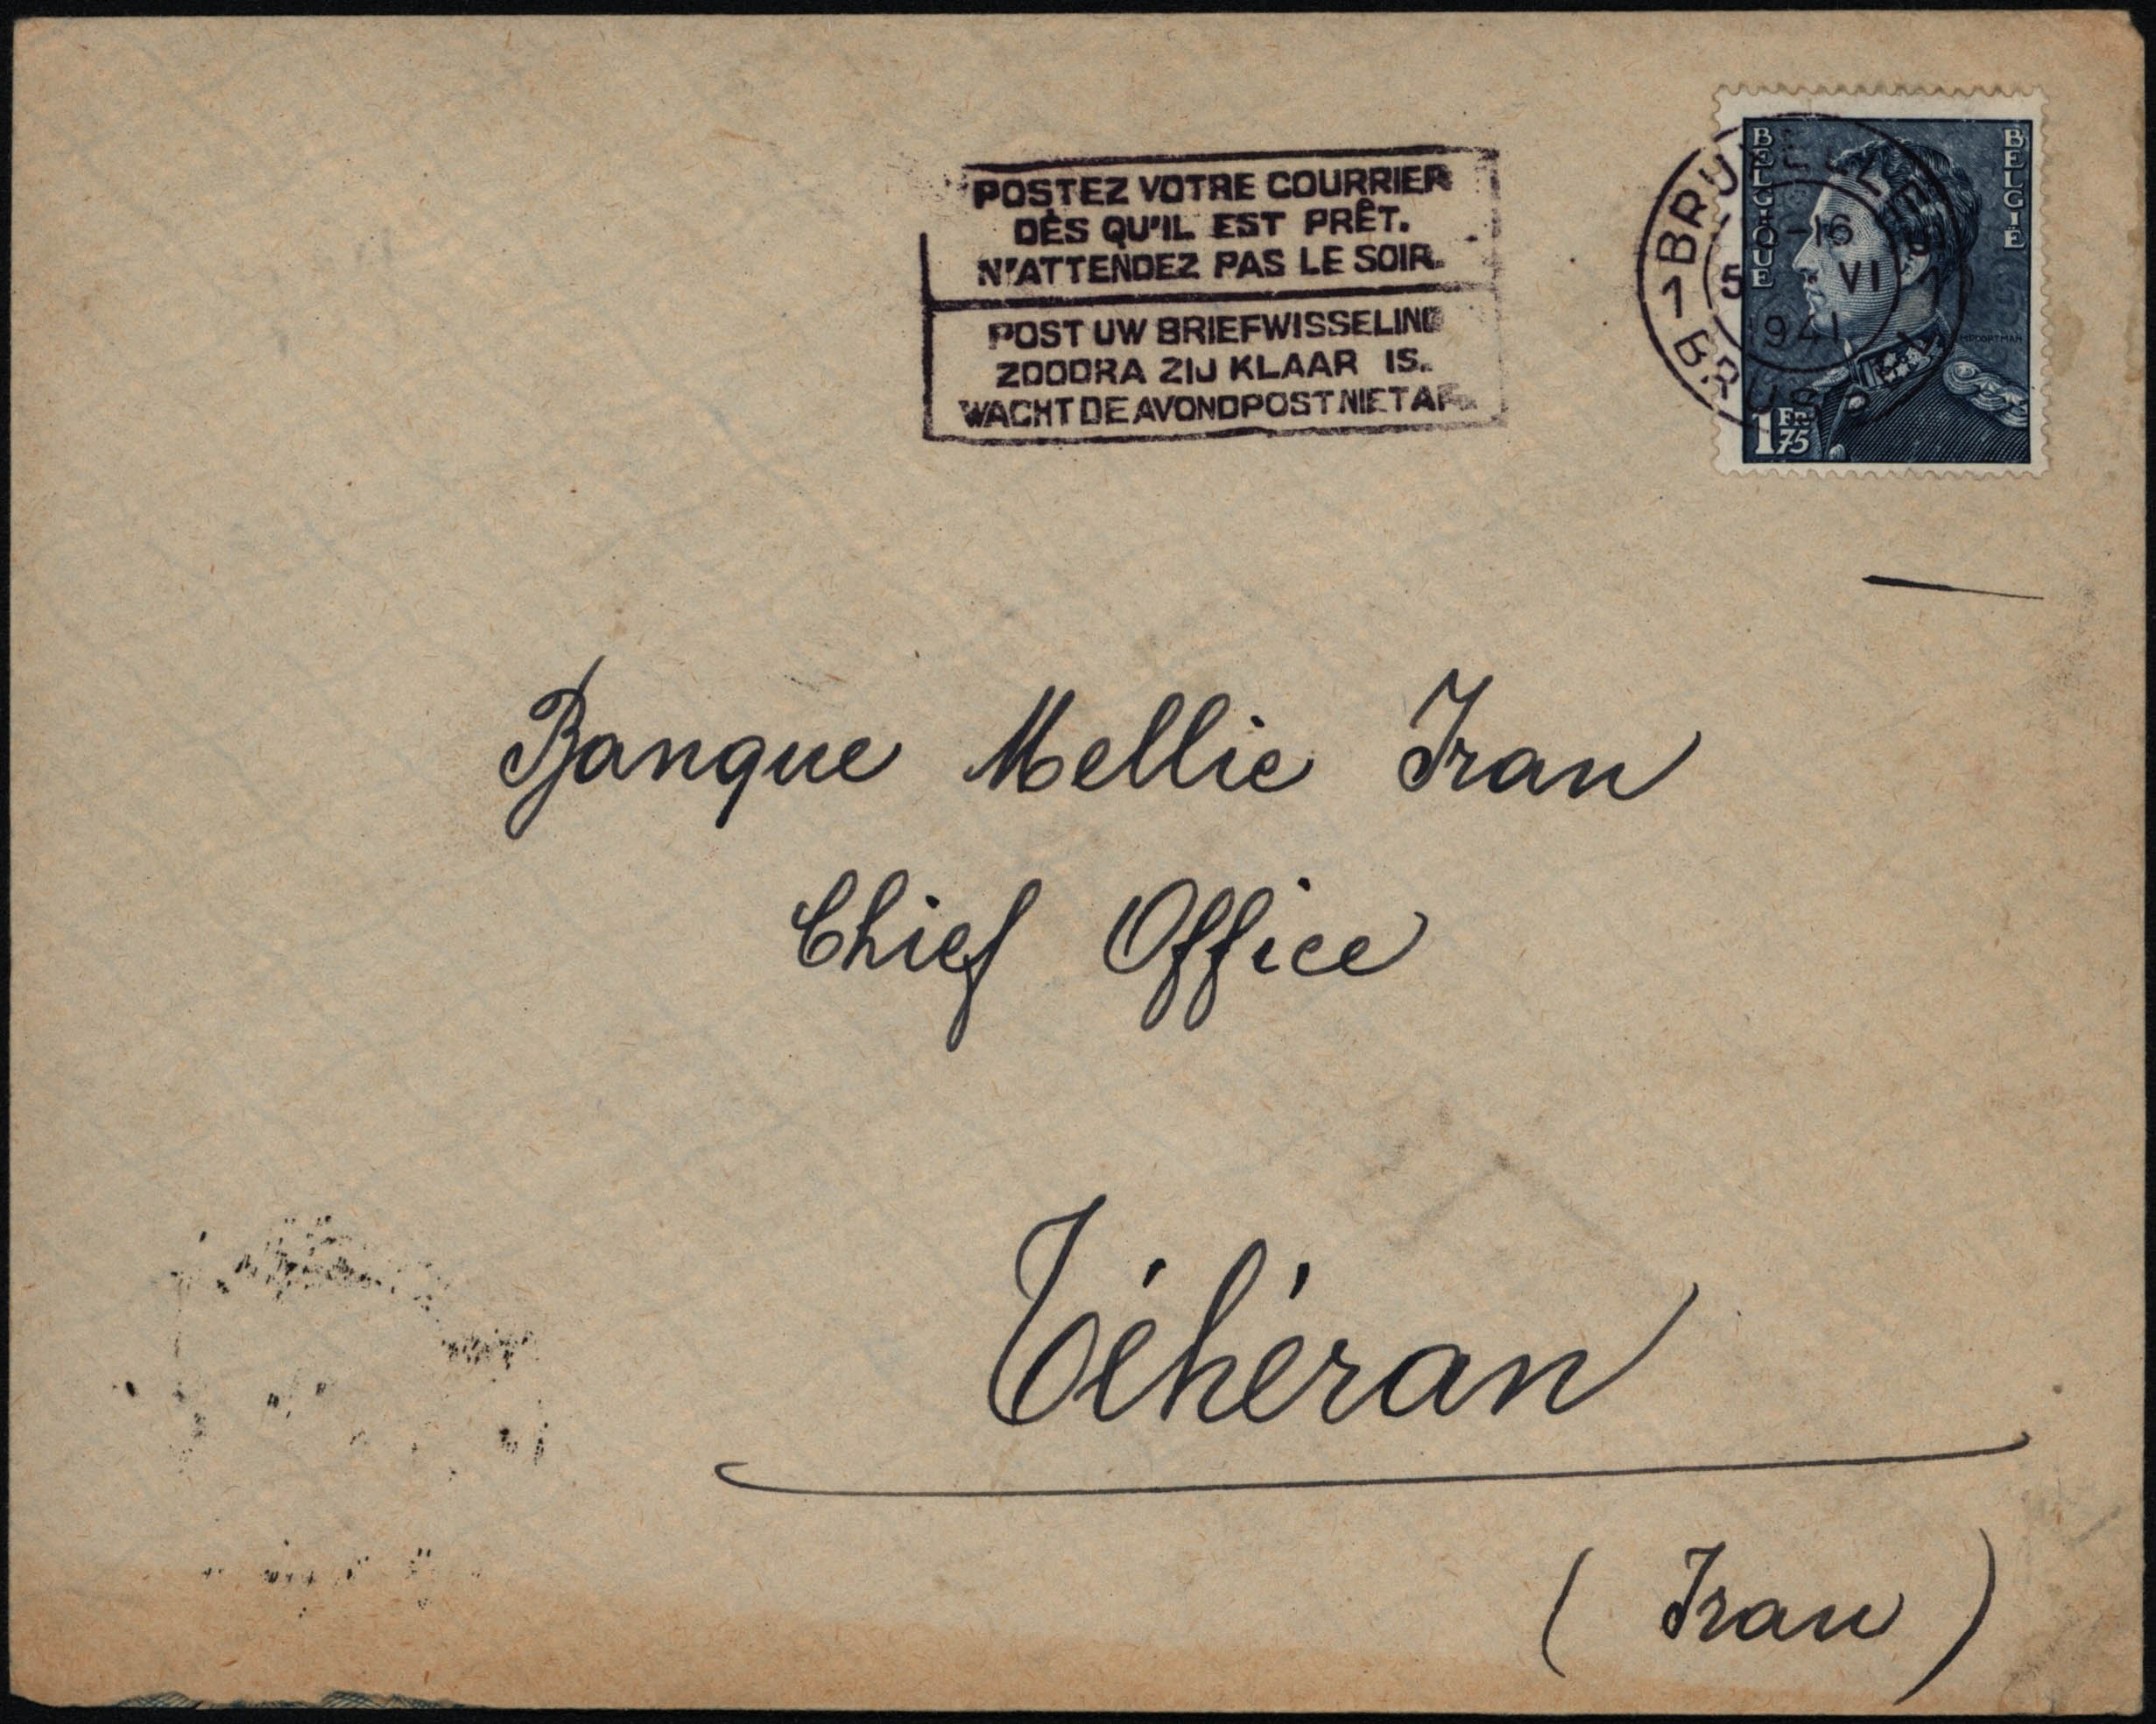 POSTEZ VOTRE COURRIER
DÈS QU'IL EST PRÊT.
N'ATTENDEZ PAS LE SOIR.
POST UW BRIEFWISSELING
ZOODRA ZIJ KLAAR IS.
WACHT DE AVONDPOST NIET AF.
BELGIQUE
BELGIË
1 FR 75
1 BRUXELLES 1
-16
5 VI
1941
BRUSSEL
Banque Mellie Iran
Chief Office
Téhéran
(Iran)